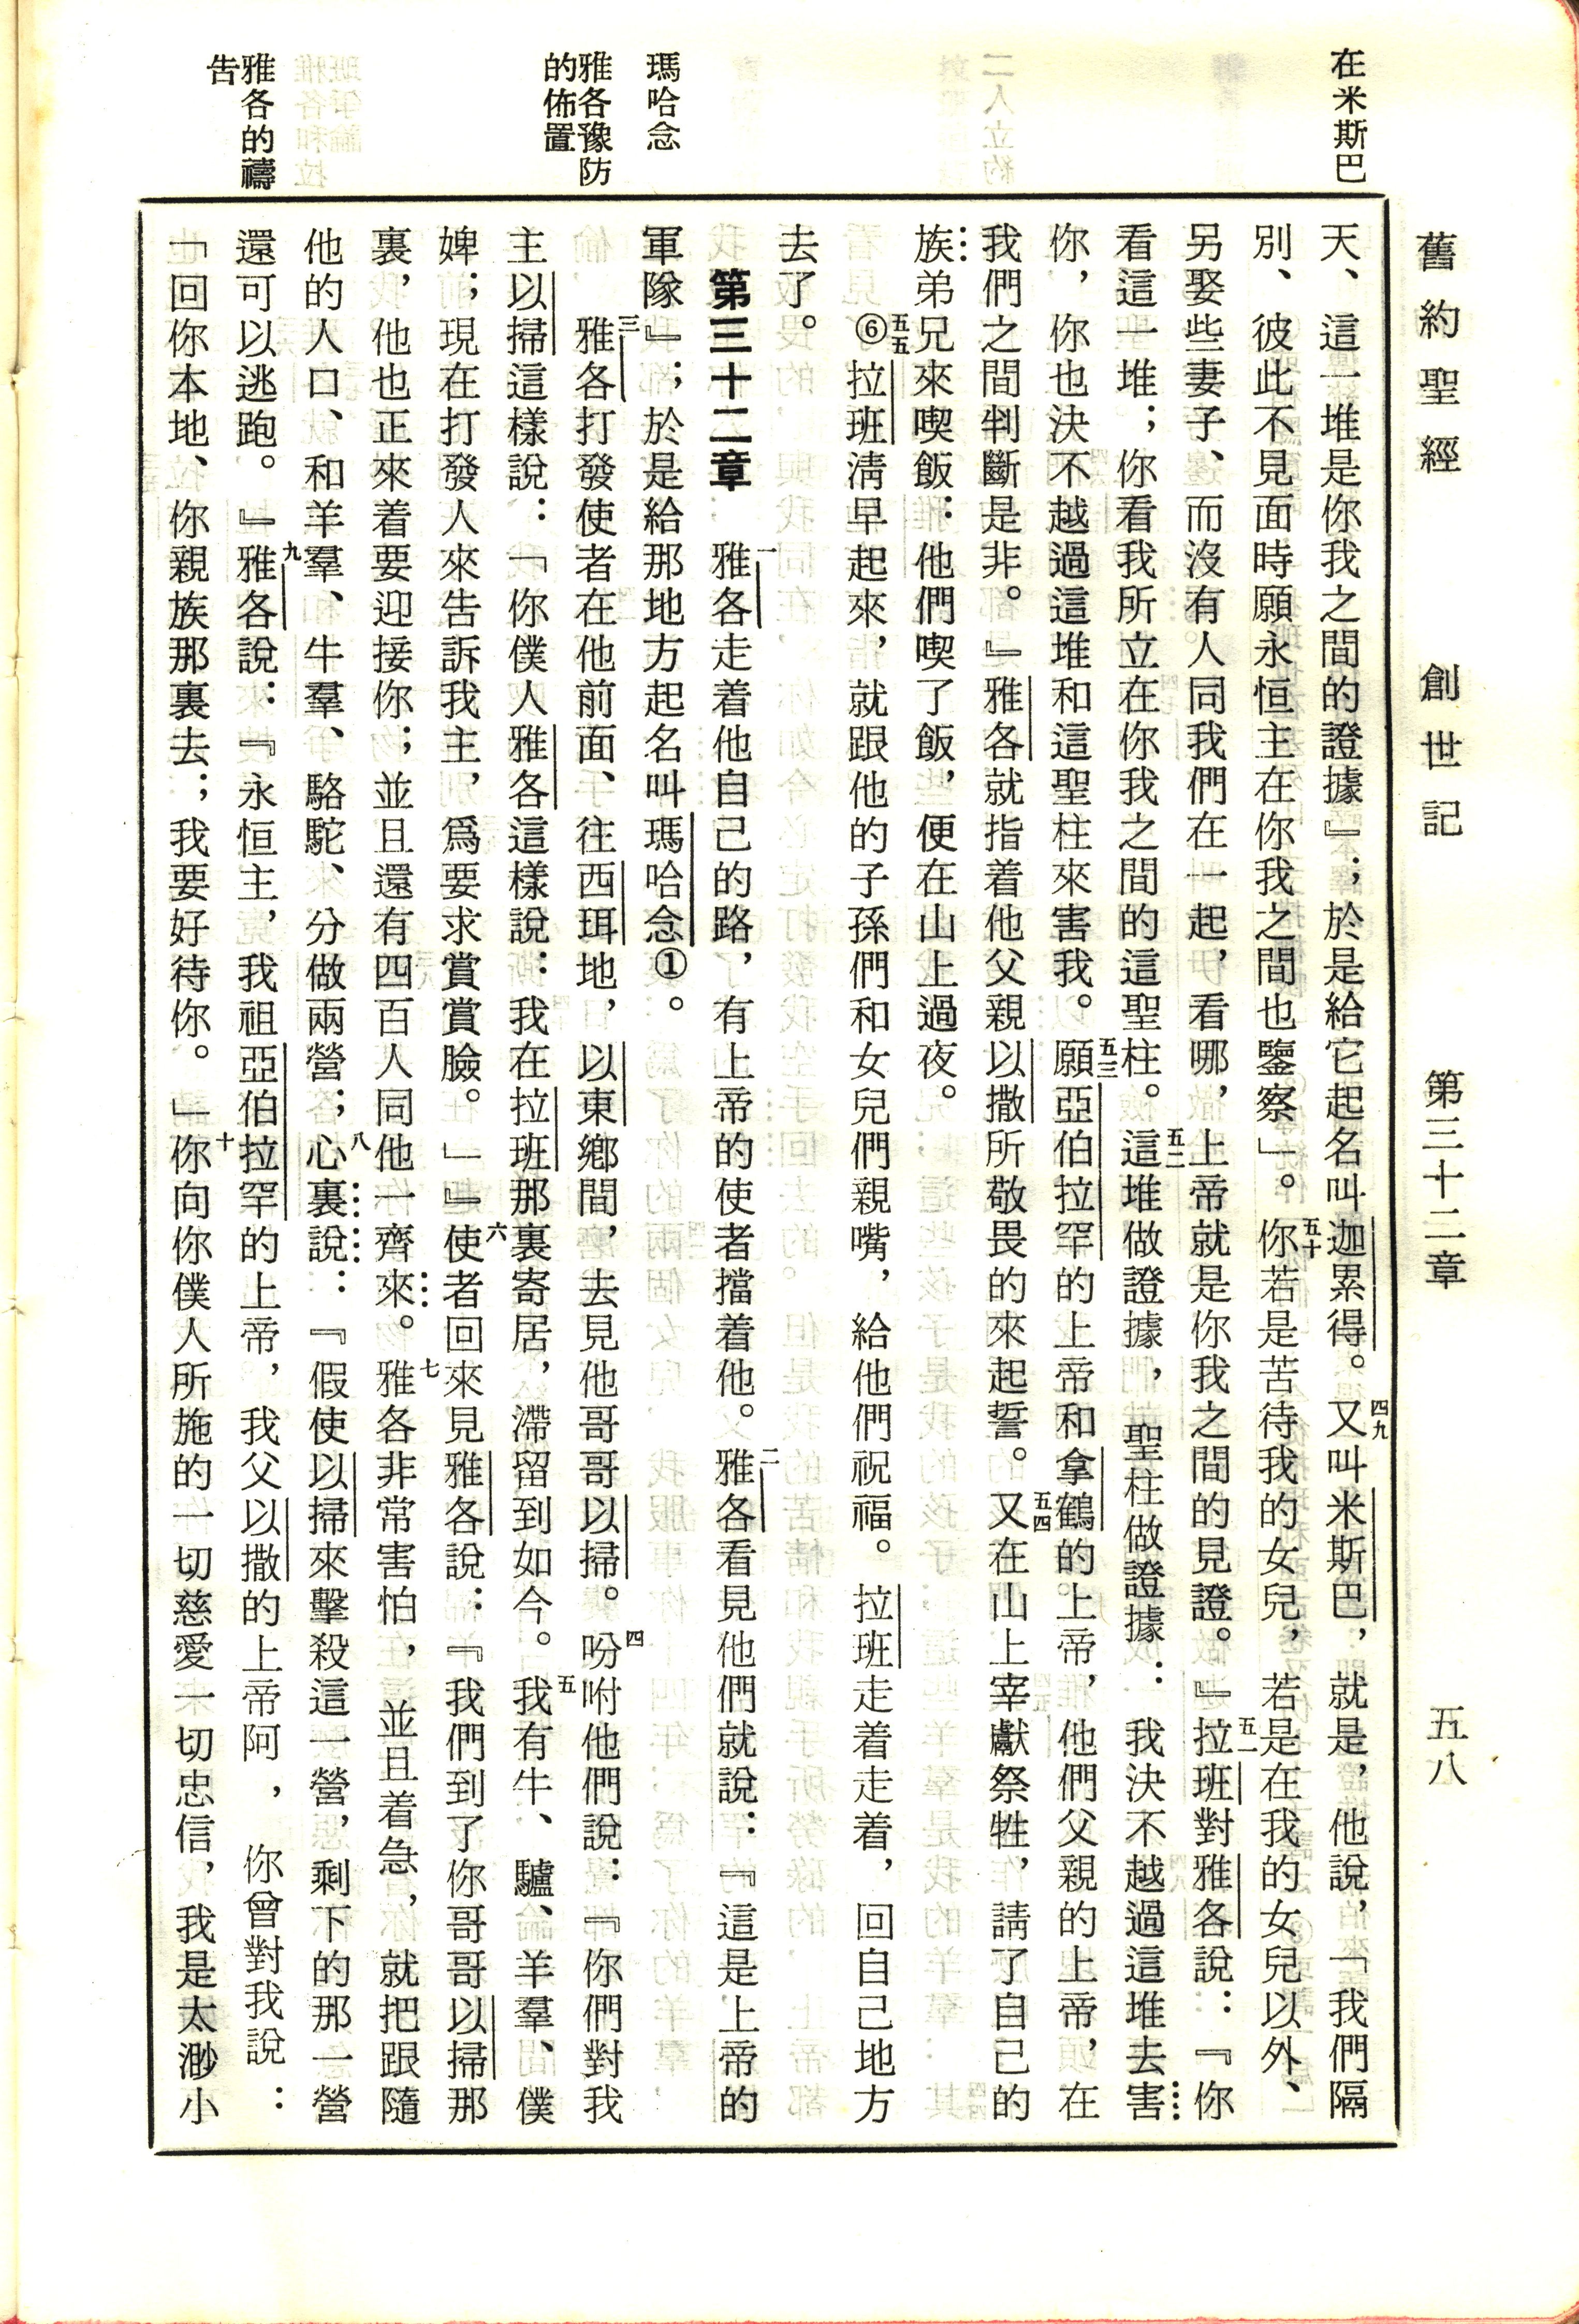 舊約聖經　創世記　第三十二章　五八
在米斯巴
瑪哈念
雅各豫防
的佈置
雅各的禱
告
天、這一堆是你我之間的證據』；於是給它起名叫迦累得。四九又叫米斯巴，就是，他說，「我們隔
別、彼此不見面時願永恒主在你我之間也鑒察」。五十你若是苦待我的女兒，若是在我的女兒以外、
另娶些妻子、而沒有人同我們在一起，看哪，上帝就是你我之間的見證。』五一拉班對雅各說：『你
看這一堆；你看我所立在你我之間的這聖柱。五二這堆做證據，聖柱做證據：我決不越過這堆去害
你，你也決不越過這堆和這聖柱來害我。五三願亞伯拉罕的上帝和拿鶴的上帝，他們父親的上帝，在
我們之間判斷是非。』雅各就指着他父親以撒所敬畏的來起誓。五四又在山上宰獻祭牲，請了自己的
族弟兄來喫飯：他們喫了飯，便在山上過夜。
五五⑥拉班淸早起來，就跟他的子孫們和女兒們親嘴，給他們祝福。拉班走着走着，回自己地方
去了。
第三十二章　一雅各走着他自己的路，有上帝的使者擋着他。二雅各看見他們就說：『這是上帝的
軍隊』；於是給那地方起名叫瑪哈念①。
三雅各打發使者在他前面、往西珥地，以東鄉間，去見他哥哥以掃。四吩咐他們說：『你們對我
主以掃這樣說：「你僕人雅各這樣說：我在拉班那裏寄居，滯留到如今。五我有牛、驢、羊羣、僕
婢；現在打發人來告訴我主，爲要求賞賞臉。」』六使者回來見雅各說：『我們到了你哥哥以掃那
裏，他也正來着要迎接你；並且還有四百人同他一齊來。七雅各非常害怕，並且着急，就把跟隨
他的人口、和羊羣、牛羣、駱駝、分做兩營；八心裏說：『假使以掃來擊殺這一營，剩下的那一營
還可以逃跑。』九雅各說：『永恒主，我祖亞伯拉罕的上帝，我父以撒的上帝阿，你曾對我說：
「回你本地、你親族那裏去；我要好待你。」十你向你僕人所施的一切慈愛一切忠信，我是太渺小